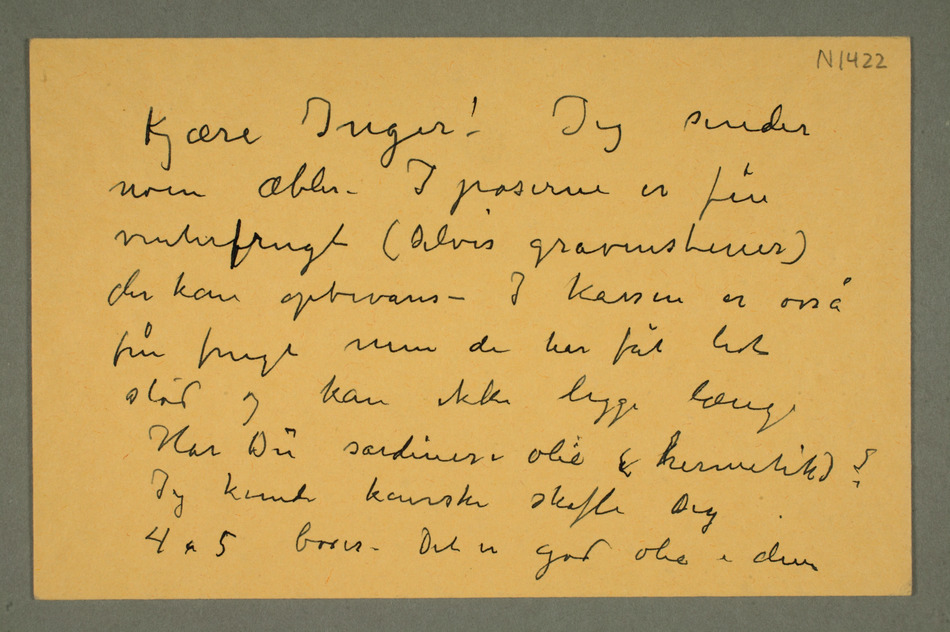 N1422
Kjære Inger! Jeg sender
noen æbler – I poserne er fin
vinterfrugt (delvis gravenstener)
der kan opbevares – I kassen er også
fin frugt men de har fåt lidt
stød og kan ikke ligge længe
Har Du sardiner i olie (hermetik)?
Jeg kunde kanske skaffe Dig
4 a 5 boxer – Det er god olie i dem